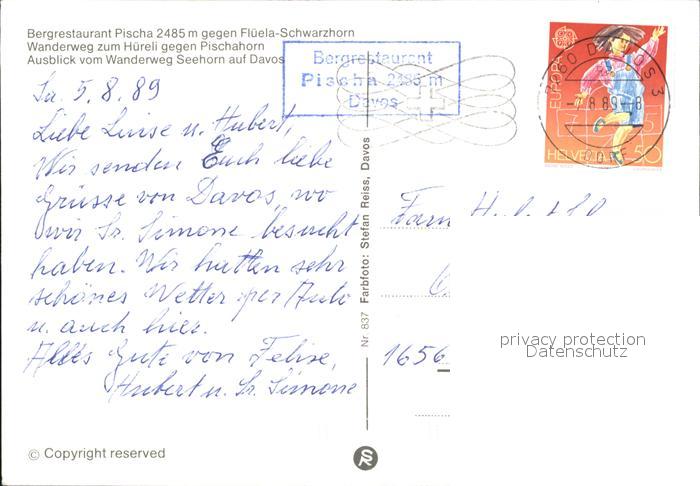 Bergrestaurant Pischa 2485 m gegen Flüela-Schwarzhorn
Wanderweg zum Hüreli gegen Pischahorn
Ausblick vom Wanderweg Seehorn auf Davos
Bergrestaurant
Pischa 2485 m
Davos
Sa, 5.8.89
Liebe Luise u. Hubert,
Wir senden Euch liebe
Grüsse von Davos, wo
wir Sr. Simone besucht
haben. Wir hatten sehr
schönes Wetter per Auto
u. auch hier.
Alles Gute von Felise,
Hubert u. Sr. Simone
© Copyright reserved
Nr. 837 Farbfoto: Stefan Reiss, Davos
SR
EUROPA
HELVETIA
50
DAVOS 3
8.89-8
Fam
1656
privacy protection
Datenschutz